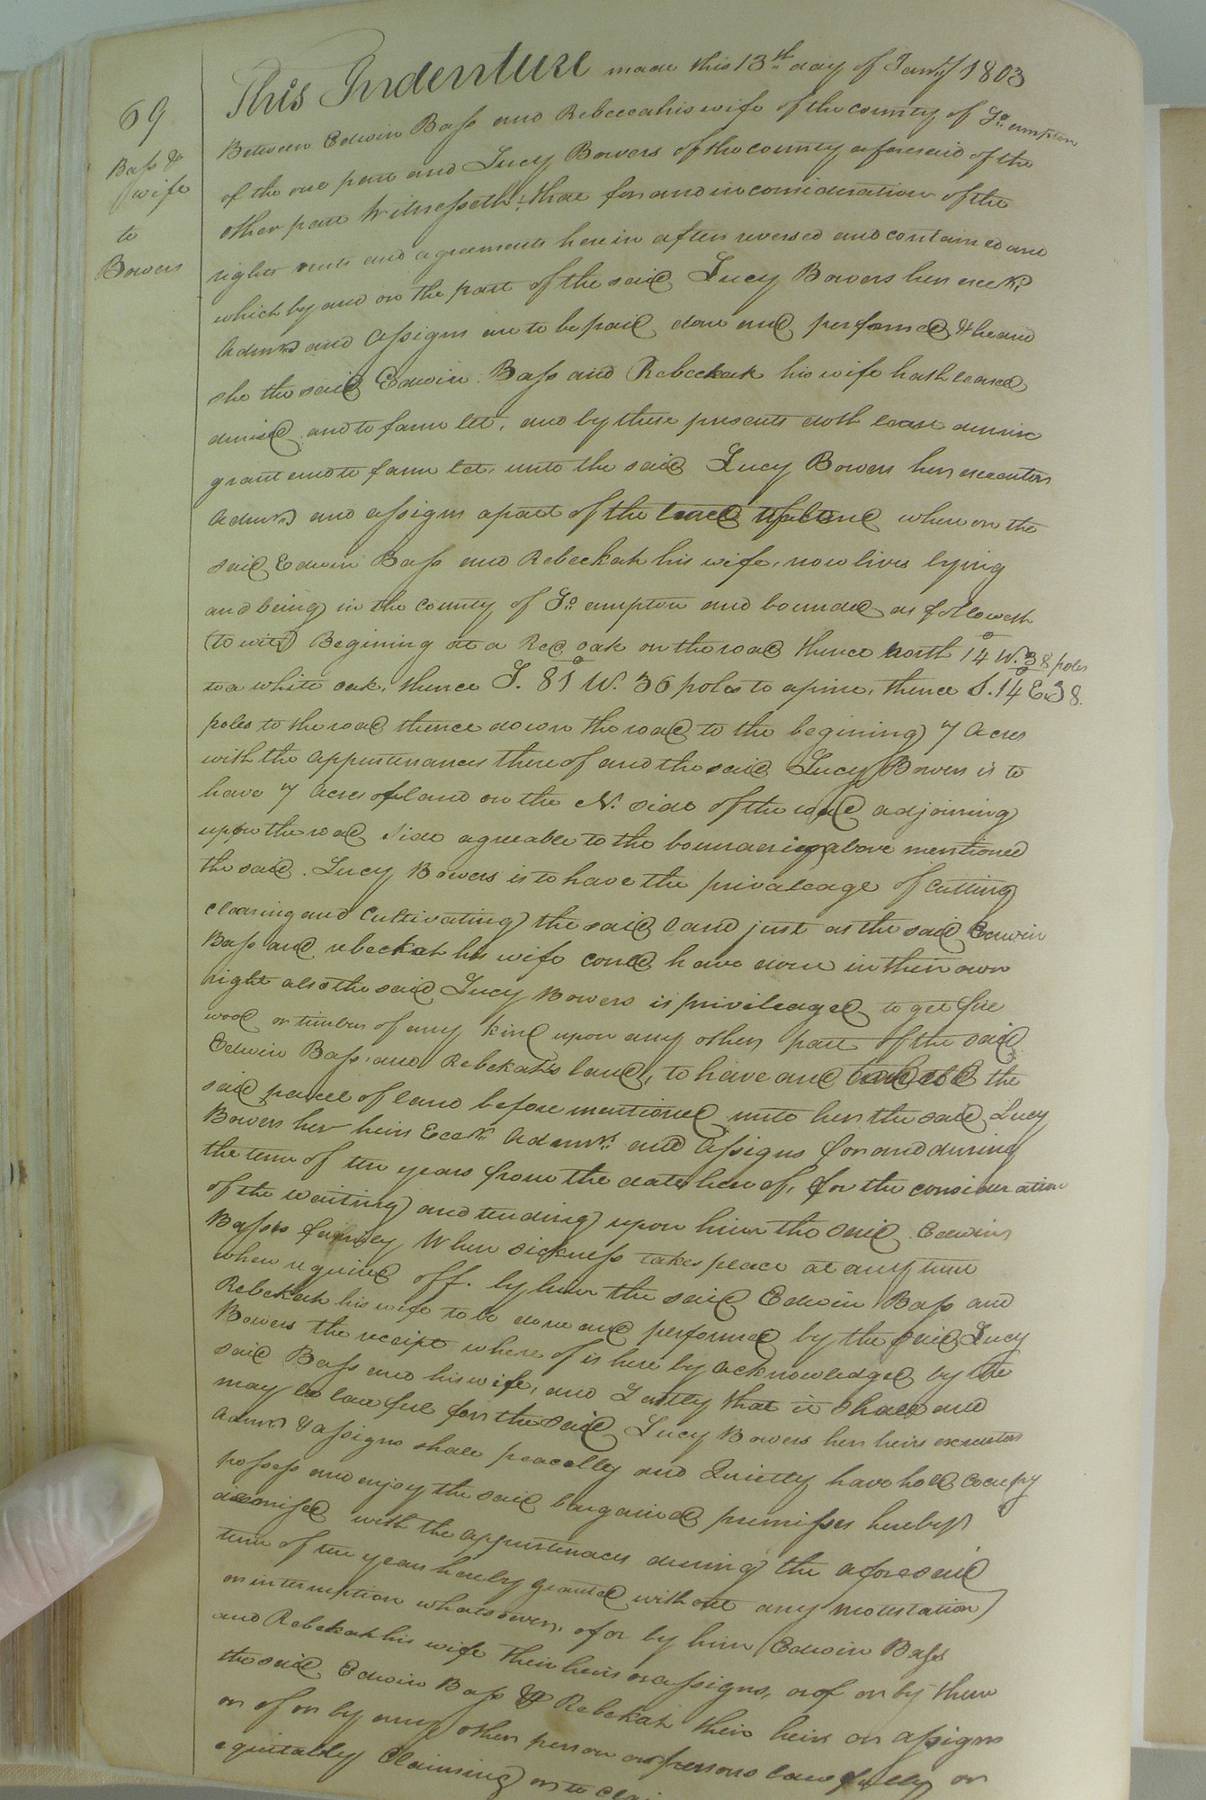 69
Bass &
wife
to
Bowers
This Indenture made this 13th day of Jan'y 1803
Between Edwin Bass and Rebeccah his wife of the county of So. ampton
of the one part and Lucy Bowers of the county aforesaid of the
other part Witnesseth, that for and in consideration of the
rights rents and agreements herein after reversed and contained and
which by and on the part of the said Lucy Bowers her
Admrs and Assigns are to be paid, done and performed, & he and
she the said Edwin Bass and Rebeckah his wife hath leased,
demised, and to farm let, and by these presents doth lease demise
grant and to farm let, unto the said Lucy Bowers her executors
Admrs and assigns a part of the where on the
said Edwin Bass and Rebeckah his wife, now lives lying
and being in the County of So. ampton and bounded as followeth
(to wit) Begining at a Red oak on the road thence North 14° W. 38 poles
to a white oak, thence S. 81° W. 36 poles to a pine, thence S. 14° E. 38
poles to the road thence down the road to the begining 7 Acres
with the Appurtenances there of and the said Lucy Bowers is to
have 7 Acres of land on the N. side of the road adjoining
upon the road side agreable to the boundaries above mentioned
the said. Lucy Bowers is to have the privaleage of Cutting
clearing and Cultivating the said land just as the said Edwin
Bass and rebeckah his wife could have done in their own
right also the said Lucy Bowers is privileaged to get fire
wood or timber of any kind upon any other part of the said
Edwin Bass, and Rebekah's land, to have and the
said parcel of land before mentioned unto her the said Lucy
Bowers her heirs Admrs and Assigns for and during
the term of ten years from the date here of, for the consideration
of the waiting and tending upon him the said Edwin
Bass's family When sickness takes peace at any time
when required off. by him the said Edwin Bass and
Rebekah his wife to be done and performed by the said Lucy
Bowers the receipt where of is here by acknowledged by the
said Bass and his wife, and Lastly that it shall and
may be lawful for the said Lucy Bowers her heirs executors
Admrs & assigns shall peacebly and Quietly have hold occupy
possess and enjoy the said bargained premisses hereby
with the appurtenaces during the aforesaid
term of ten years hereby granted without any molestation
or interruption whatsoever, of or by him Edwin Bass
and Rebekah his wife their heirs or assigns, or of or by them
the said Edwin Bass & Rebekah their heirs or assigns
or of or by any other person or persons lawfully or
equitably Claiming or to